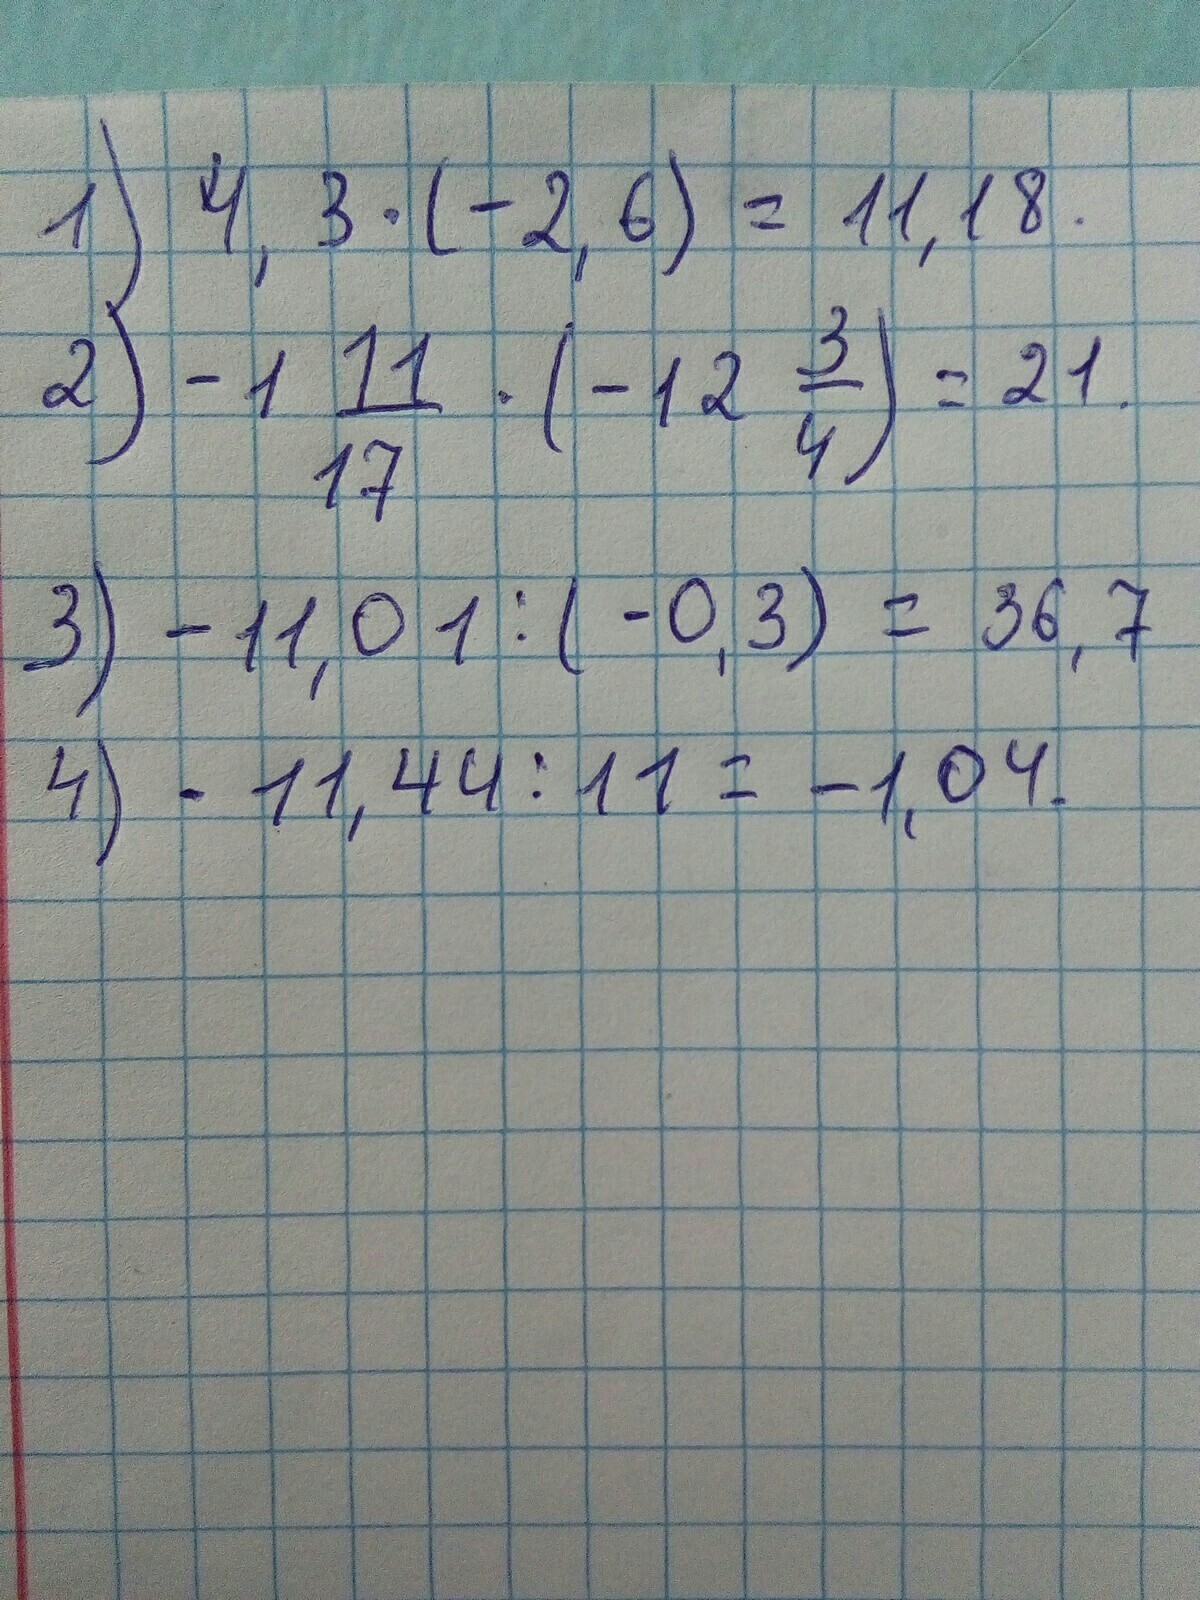 1) 4,3·(-2,6) = 11,18.
2) -1 11/17 · (-12 3/4) = 21.
3) -11,01:(-0,3) = 36,7
4) - 11,44:11 = -1,04.